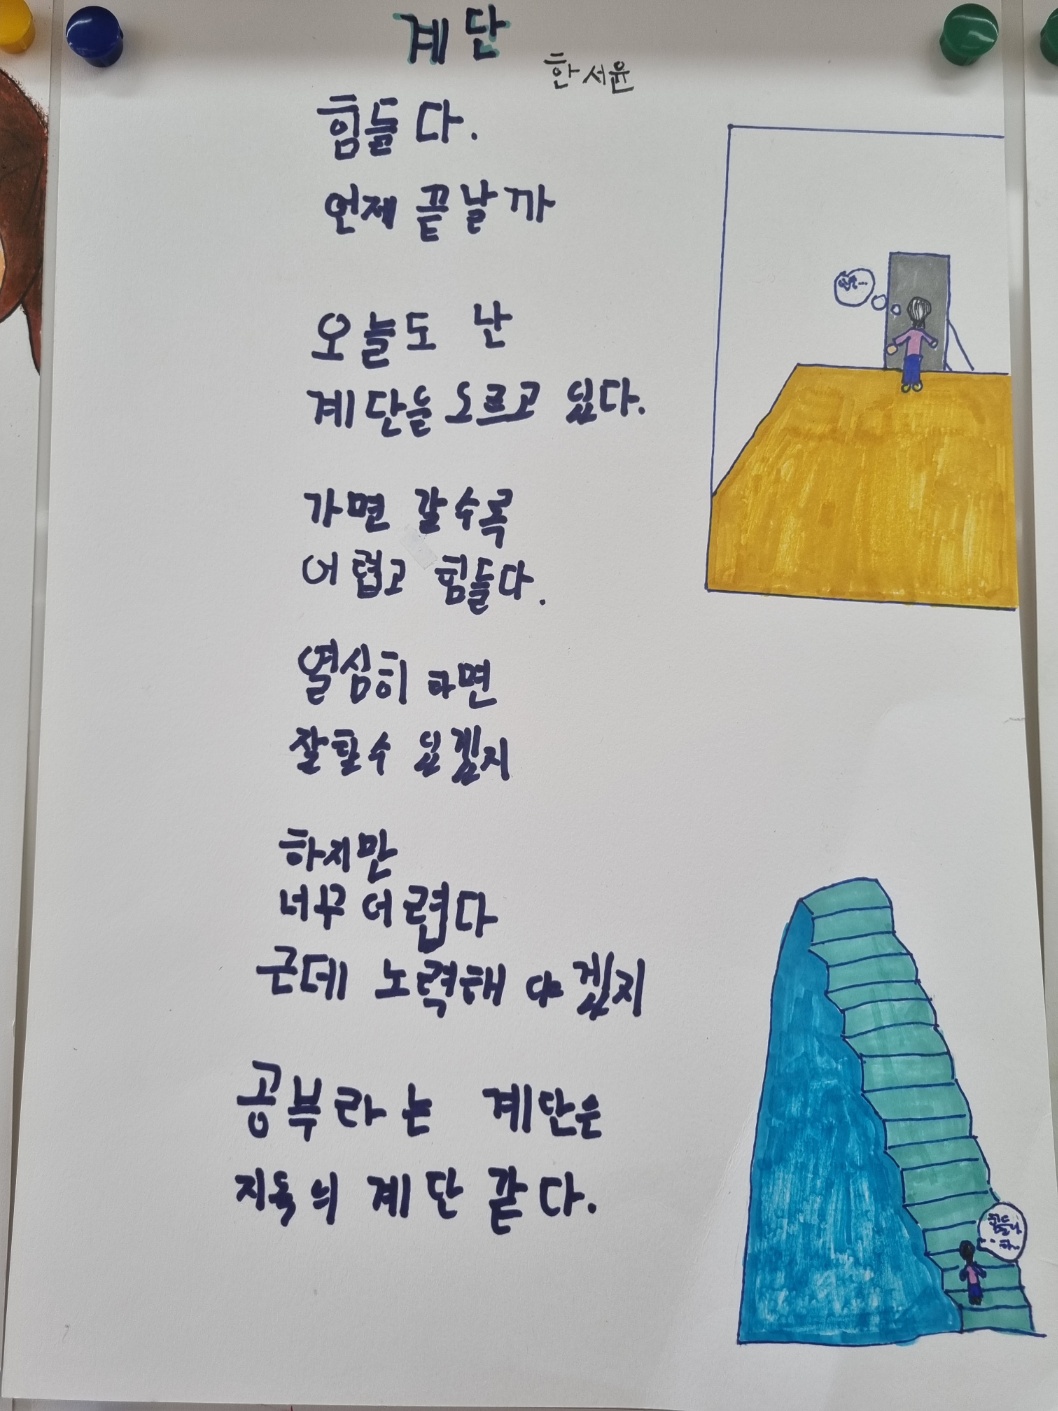 계단
한서윤
힘들다.
언제 끝날까
오늘도 난
계단을 오르고 있다.
가면 갈수록
어렵고 힘들다.
열심히 하면
잘할수 있겠지
하지만
너무 어렵다
근데 노력해야겠지
공부라는 계단은
지옥의 계단 같다.
힘들다